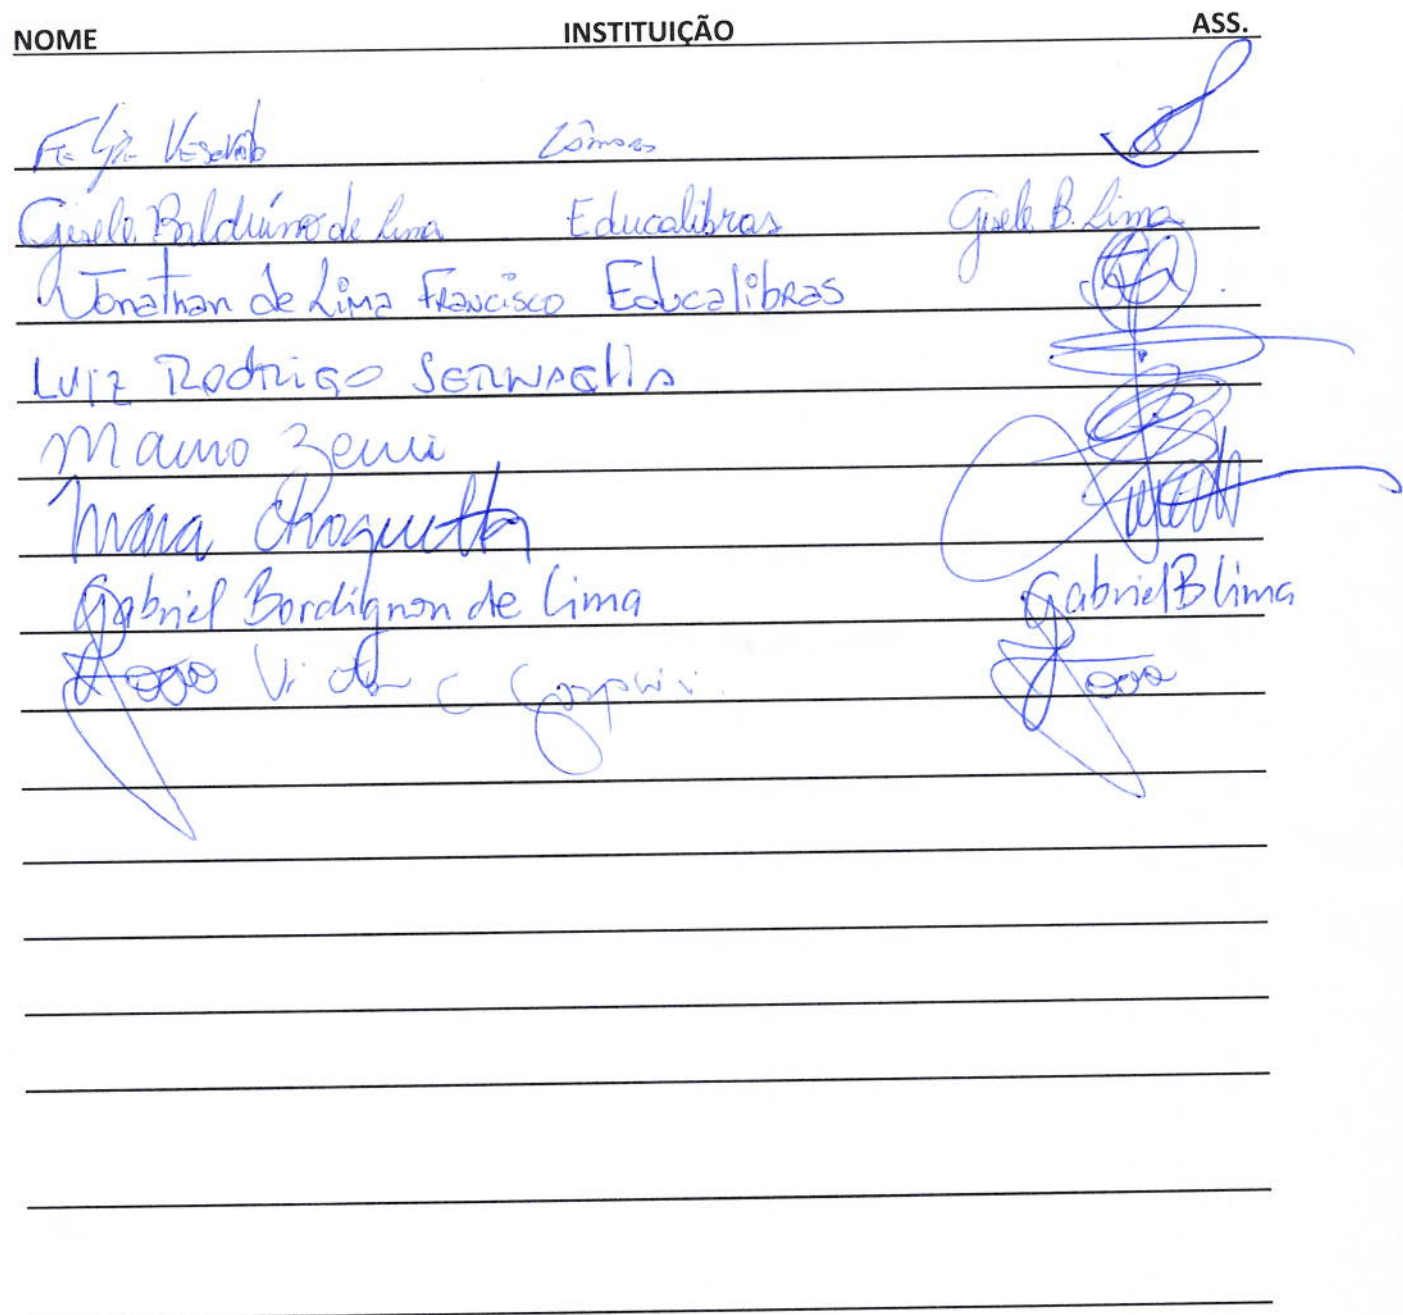 NOME INSTITUIÇÃO ASS.
Câmara
Gisele Balduino de Lima Educalibras Gisele B. Lima
Jonathan de Lima Francisco Educalibras
Luiz Rodrigo SERNAGLIA
Mauro Zeuri
Mara Choquetta
Gabriel Bordignon de Lima Gabriel B Lima
João Victor C João